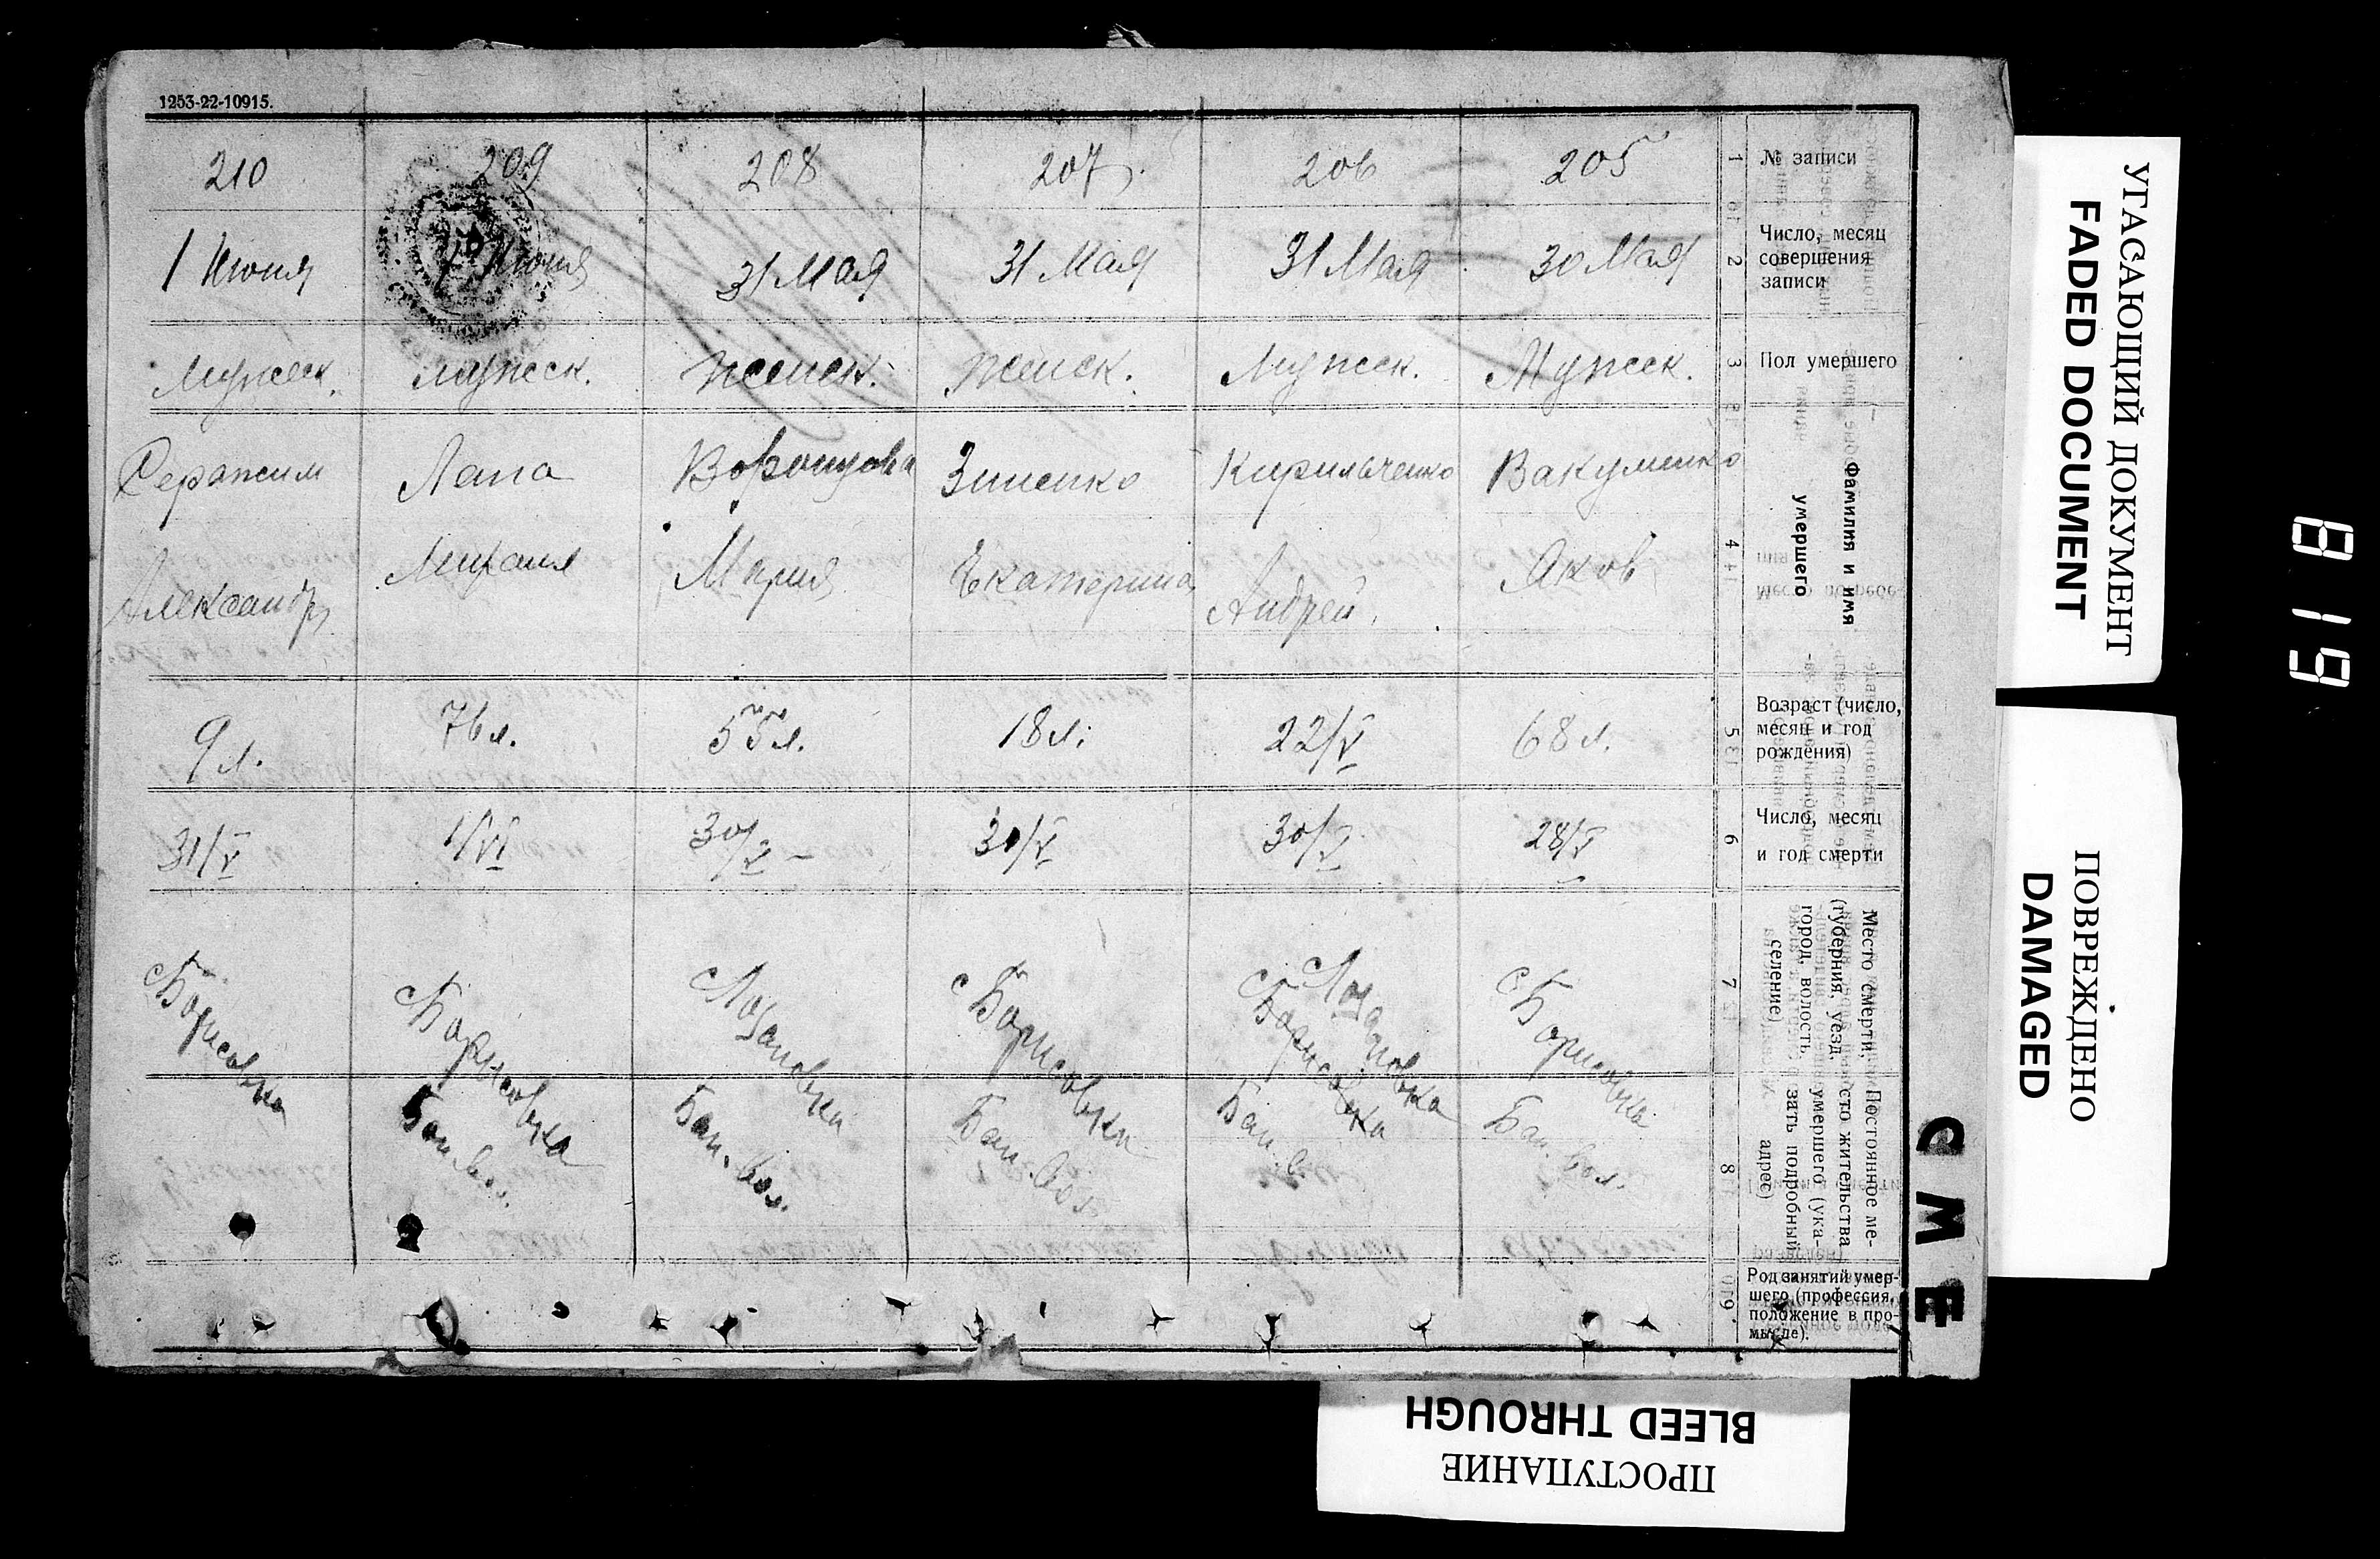 1253-22-10915.
210 209 208 207 206 205 1 № записи
1 Июня Июня 31 Мая 31 Мая 31 Мая 30 Мая 2 Число, месяц совершения записи
Мужск. Мужск. Женск. Женск. Мужск. Мужск. 3 Пол умершего
Лапа Воронцова Зиненко Кирильченко Вакуленко 4 Фамилия и имя умершего
Александр Михаил Мария Екатерина Андрей Яков
9 л. 76 л. 55 л. 18 л. 22/V 68 л. 5 Возраст (число, месяц и год рождения)
31/V 1/VI 30/V 30/V 30/V 28/V 6 Число, месяц и год смерти
с Борисовка с Борисовка с Лозановка с Борисовка с Лозановка с Борисовка с Борисовка 7 Место смерти, (губерния, уезд, город, волость, селение)
Бан. вол. Бан. вол. Бан. вол. Бан. в. Бан. вол. 8 Постоянное место жительства умершего (указать подробный адрес)
9 Род занятий умер-
шего (профессия,
положение в про-
мысле).
СМЕ
УГАСАЮЩИЙ ДОКУМЕНТ
FADED DOCUMENT
ПОВРЕЖДЕНО
DAMAGED
BLEED THROUGH
ПРОСТУПАНИЕ
819